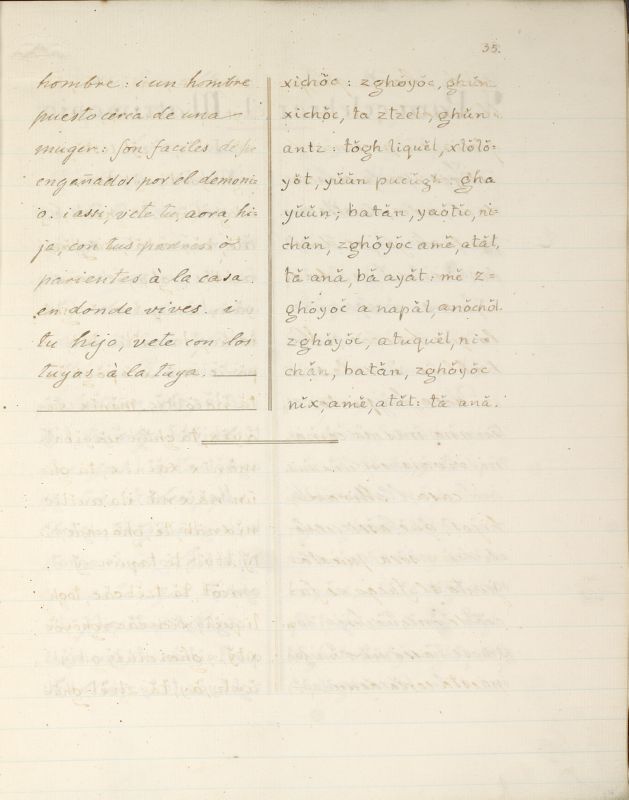 35.
hombre: i un hombre
puesto cerca de una
muger: son faciles de ser
engañados por el demoni=
o. i assi, vete tu, aora, hi=
ja, con tus padres ò
parientes à la casa
en donde vives. i
tu hijo, vete con los
tuyos à la tuya.
xichŏc: zghŏyŏc, ghŭn
xichŏc, ta ztzel, ghŭn
antz: tŏgh liquĕl, xlŏlŏ=
yŏt, yŭŭn pucŭgh: gha
yŭŭn; batăn, yaŏtic, ni=
chăn, zghŏyŏc amĕ, atăt,
tă ană, bă ayăt: mĕ z=
ghŏyŏc a napăl, anŏchŏl
zghŏyŏc, atuquĕl, ni=
chăn, batăn, zghŏyŏc
nĭx, amĕ, atăt: tă ană.